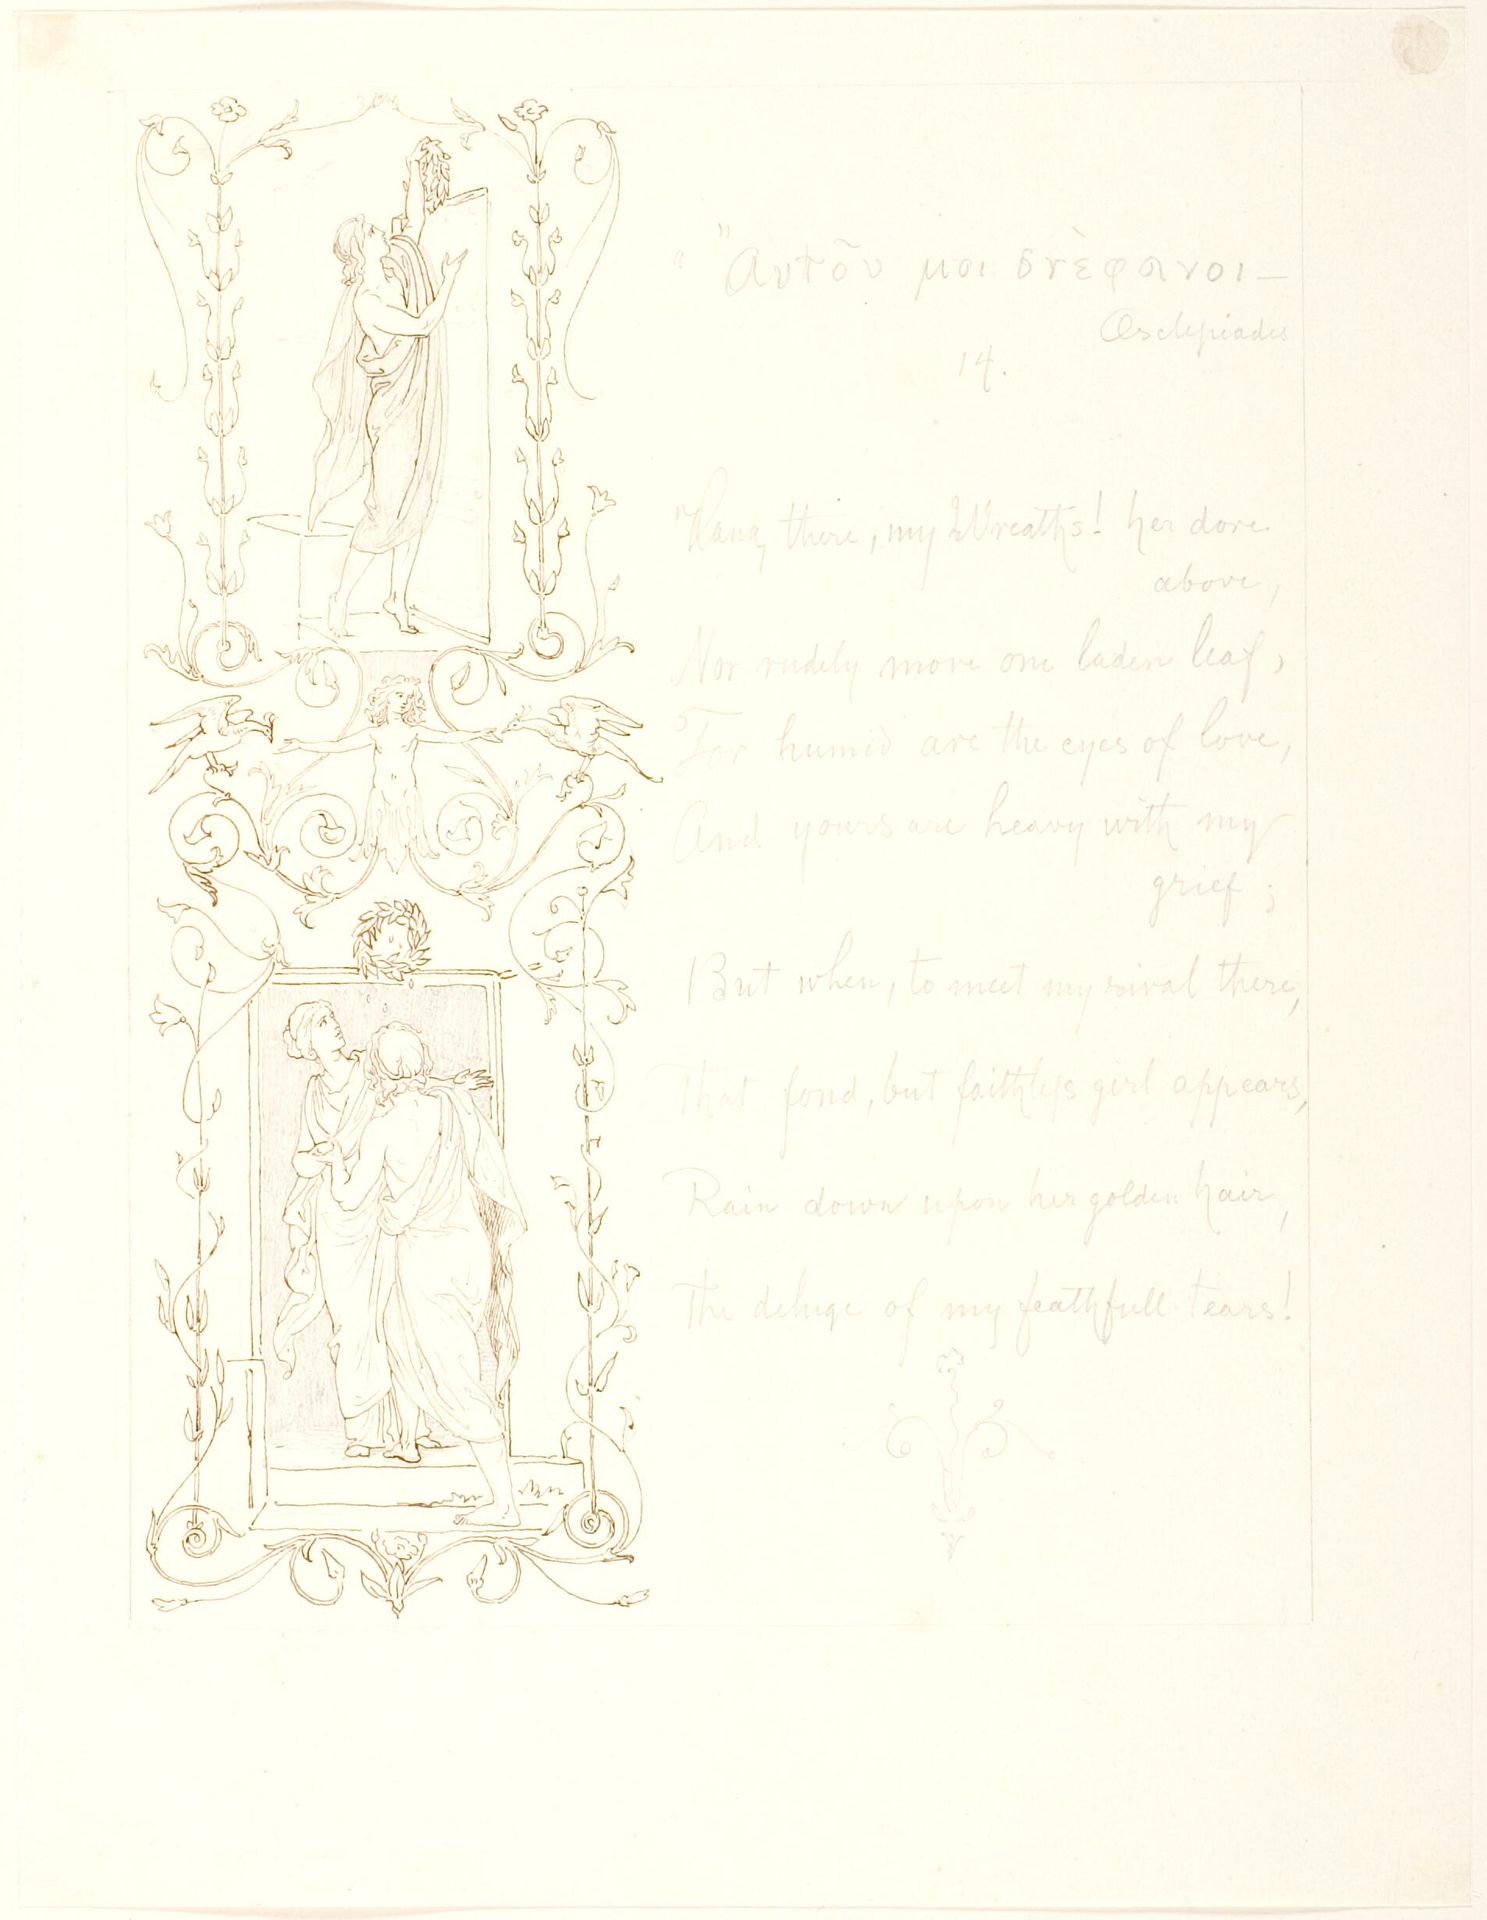 " "Αυτο̃υ μοι στὲφανοι —
Asclepiades
14.
"Hang there, my Wreaths! her dore
above,
Nor rudely move one laden leaf,
For humid are the eyes of love,
And yours are heavy with my
grief;
But when, to meet my rival there,
That fond, but faithless girl appears,
Rain down upon her golden hair,
The deluge of my feathfull tears!